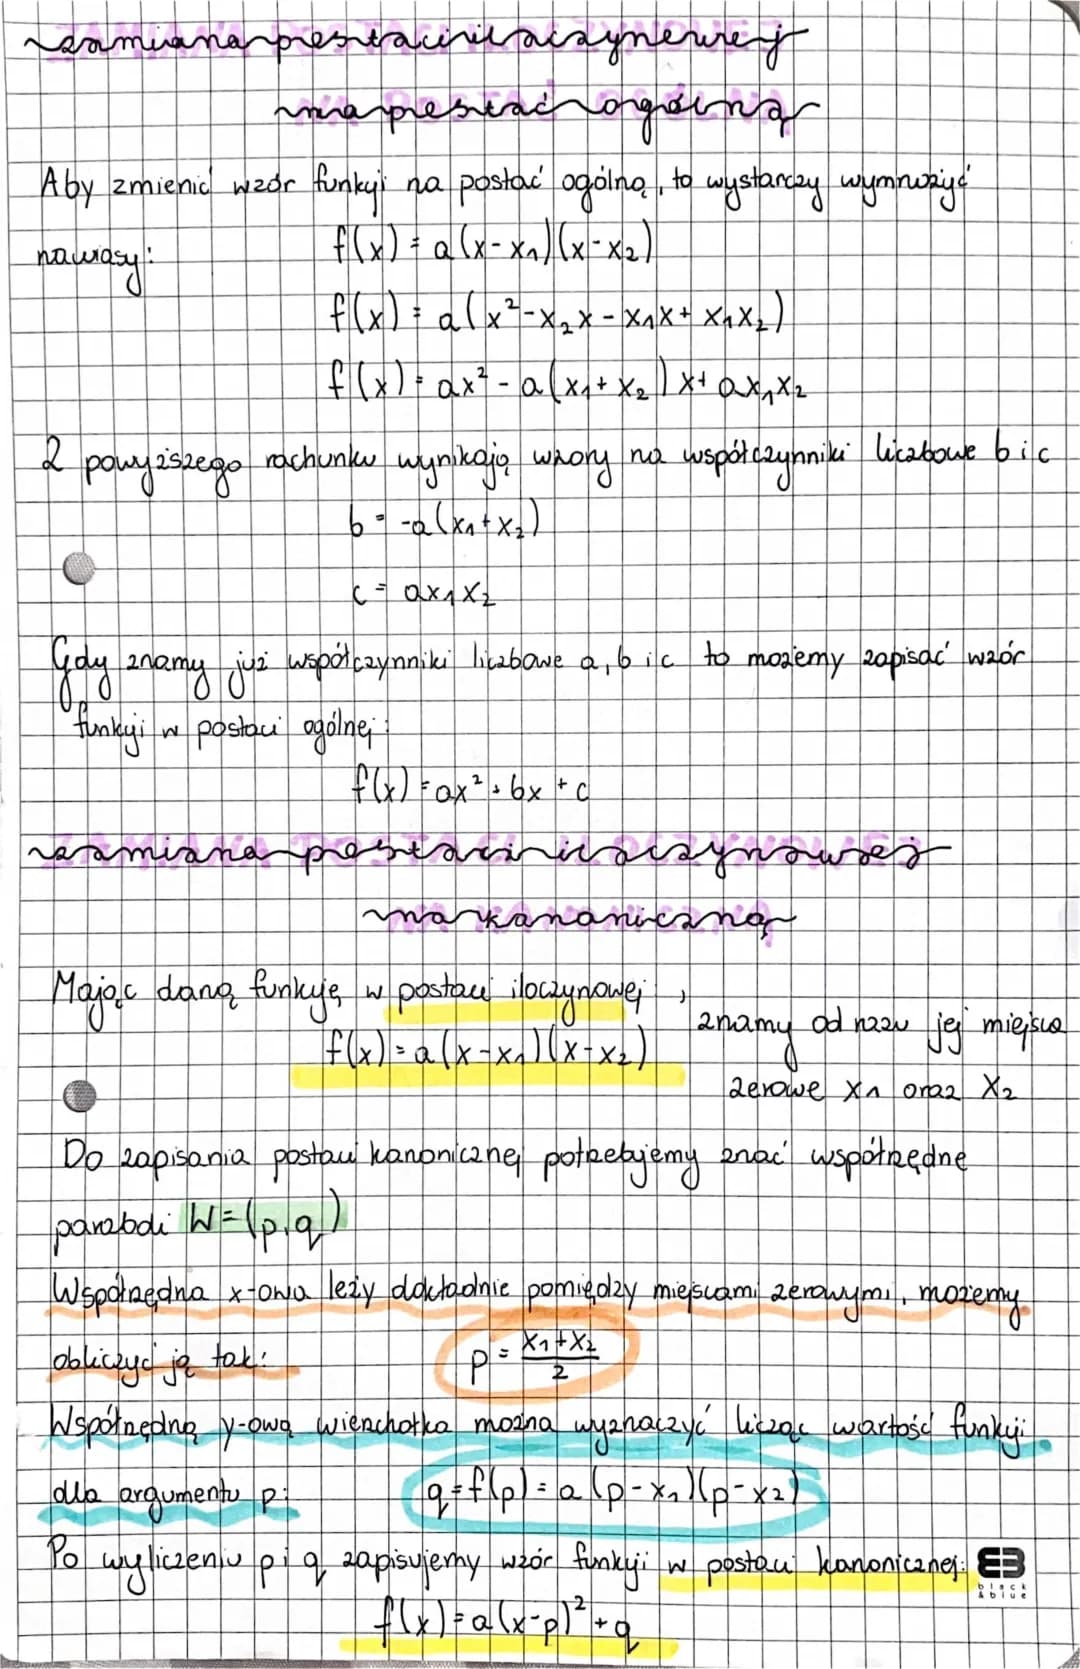 zamiana postaci iloczynowej
na postać ogólną
Aby zmienić wzór funkcji na postać ogólną, to wystarczy wymnożyć
nawiasy:
f(x) = a(x-x₁)(x-x₂)
f(x) = a(x²-x₂x-x₁x+x₁x₂)
f(x) = ax²-a(x₁+x₂)x+ax₁x₂
Z powyższego rachunku wynikają wzory na współczynniki liczbowe b i c
b = -a(x₁+x₂)
c = ax₁x₂
Gdy znamy już współczynniki liczbowe a, b i c to możemy zapisać wzór
funkcji w postaci ogólnej:
f(x) = ax²+bx+c
zamiana postaci iloczynowej
na kanoniczną
Mając daną funkcję w postaci iloczynowej,
f(x) = a(x-x₁)(x-x₂)
znamy od razu jej miejsca
zerowe x₁ oraz x₂
Do zapisania postaci kanonicznej potrzebujemy znać współrzędne
paraboli W=(p,q)
Współrzędna x-owa leży dokładnie pomiędzy miejscami zerowymi, możemy
obliczyć ją tak: p = (x₁+x₂)/2
Współrzędną y-ową wierzchołka można wyznaczyć licząc wartość funkcji
dla argumentu p: q=f(p)=a(p-x₁)(p-x₂)
Po wyliczeniu p i q zapisujemy wzór funkcji w postaci kanonicznej:
f(x)=a(x-p)²+q
black
&blue